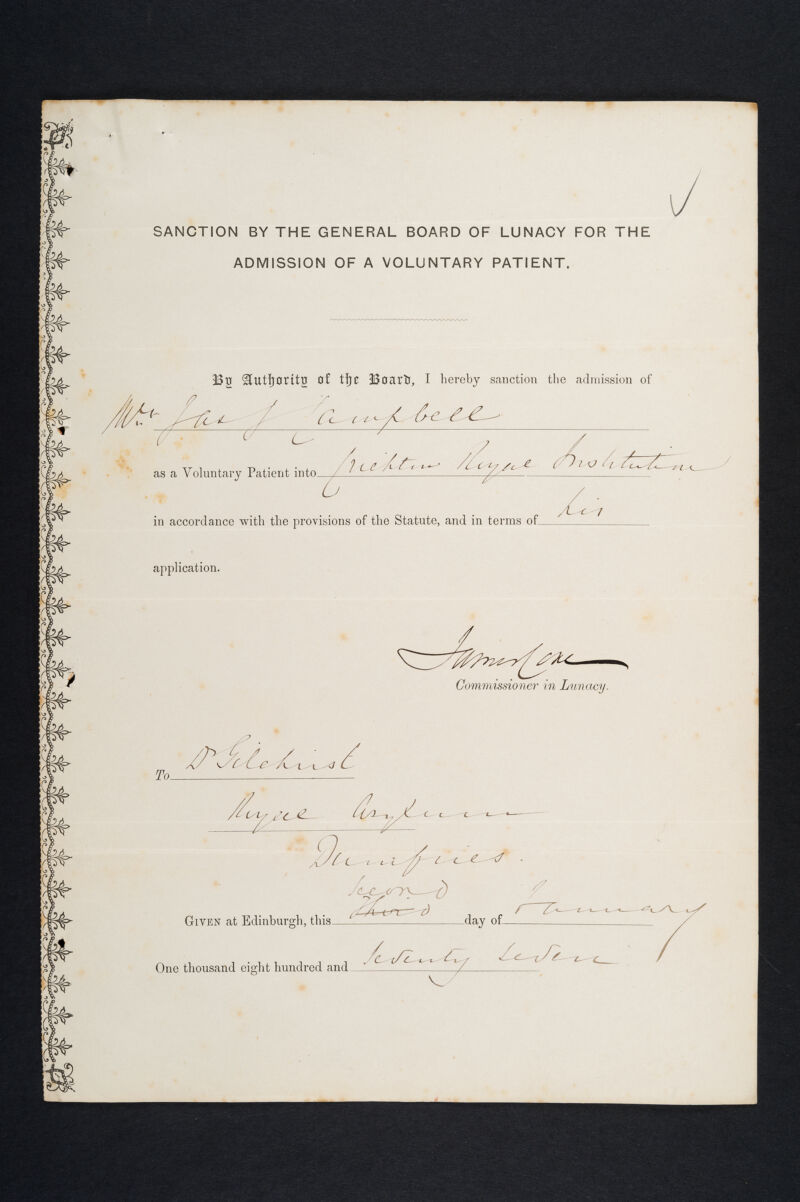 SANCTION BY THE GENERAL BOARD OF LUNACY FOR THE
ADMISSION OF A VOLUNTARY PATIENT.
By Authority of the Board, I hereby sanction the admission of
Mr Jas J Campbell
as a Voluntary Patient into Crichton Royal Institution
in accordance with the provisions of the Statute, and in terms of his
application.
James Coxe
Commissioner in Lunacy.
To Dr Gilchrist
Royal Asylum
Dumfries.
second
GIVEN at Edinburgh, this third day of January
One thousand eight hundred and seventy seven